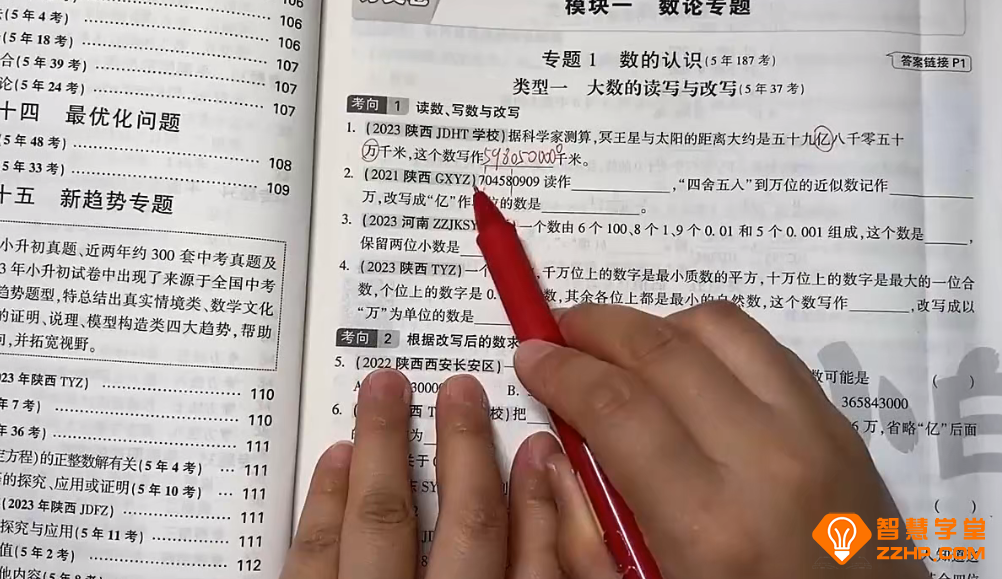 106
(5年4考) 106
(5年18考) 106
合(5年39考) 107
论(5年24考) 107
107
十四 最优化问题
5年48考) 108
5年33考) 109
十五 新趋势专题
小升初真题、近两年约 300 套中考真题及
3年小升初试卷中出现了来源于全国中考
趋势题型,特总结出真实情境类、数学文化
的证明、说理、模型构造类四大趋势,帮助
向,并拓宽视野。
23年陕西 TYZ) 110
年7考) 110
年36考) 111
定方程)的正整数解有关(5年4考) 111
的探究、应用或证明(5年10考) 111
(2023年陕西 JDFZ) 111
探究与应用(5年11考) 111
值(5年2考) 112
模块一 数论专题
专题1 数的认识(5年187考)
答案链接 P1
类型一 大数的读写与改写(5年37考)
考向 1 读数、写数与改写
1. (2023 陕西 JDHT 学校)据科学家测算,冥王星与太阳的距离大约是五十九亿八千零五十
万千米,这个数写作5980500000千米。
2. (2021 陕西 GXYZ)704580909 读作____,“四舍五入”到万位的近似数记作____
万,改写成“亿”作 位的数是____。
3. (2023 河南 ZZJKSY 一个数由 6 个 100、8 个 1、9 个 0.01 和 5 个 0.001 组成,这个数是____,
保留两位小数是____
4. (2023 陕西 TYZ)一个 ,千万位上的数字是最小质数的平方,十万位上的数字是最大的一位合
数,个位上的数字是 0. 数,其余各位上都是最小的自然数,这个数写作____,改写成以
“万”为单位的数是____
考向 2 根据改写后的数求
5. (2022 陕西西安长安区) 数可能是 ( )
A 30000 B. 365843000
6. ( 西 T 校)把 6 万,省略“亿”后面
的 为
关于(
SY
( )
智慧学堂
ZZHP.COM